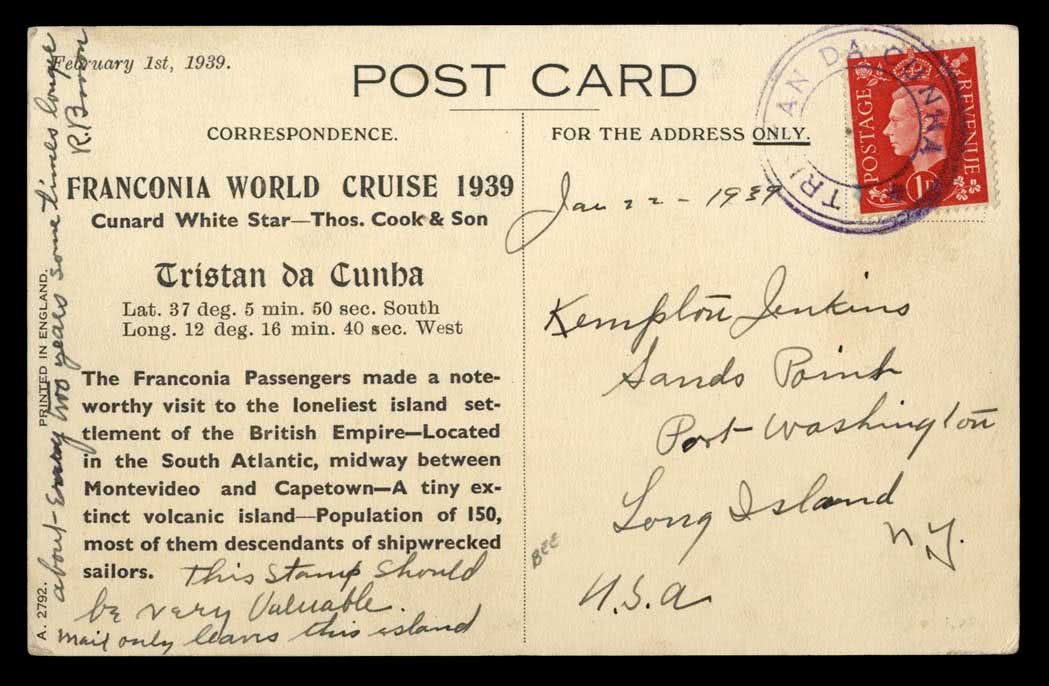 February 1st, 1939.
POST CARD
CORRESPONDENCE.
FRANCONIA WORLD CRUISE 1939
Cunard White Star—Thos. Cook & Son
Tristan da Cunha
Lat. 37 deg. 5 min. 50 sec. South
Long. 12 deg. 16 min. 40 sec. West
The Franconia Passengers made a note-
worthy visit to the loneliest island set-
tlement of the British Empire—Located
in the South Atlantic, midway between
Montevideo and Capetown—A tiny ex-
tinct volcanic island—Population of 150,
most of them descendants of shipwrecked
sailors.
This Stamp Should
be very Valuable.
Mail only leaves this island
about Every two years some times longer
PRINTED IN ENGLAND.
A. 2792.
FOR THE ADDRESS ONLY.
Jan 22 - 1939
TRISTAN DA CUNHA
POSTAGE
REVENUE
1D
Kempton Jenkins
Sands Point
Port Washington
Long Island
N.Y.
U.S.A
BEE